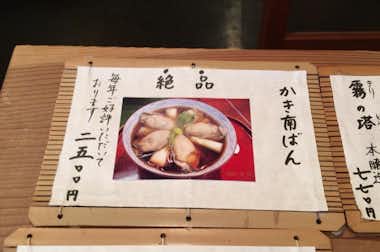 絶品
かき南ばん
毎年ご好評いただいて
おります
二五〇〇円
きり
霧の塔
七七〇円